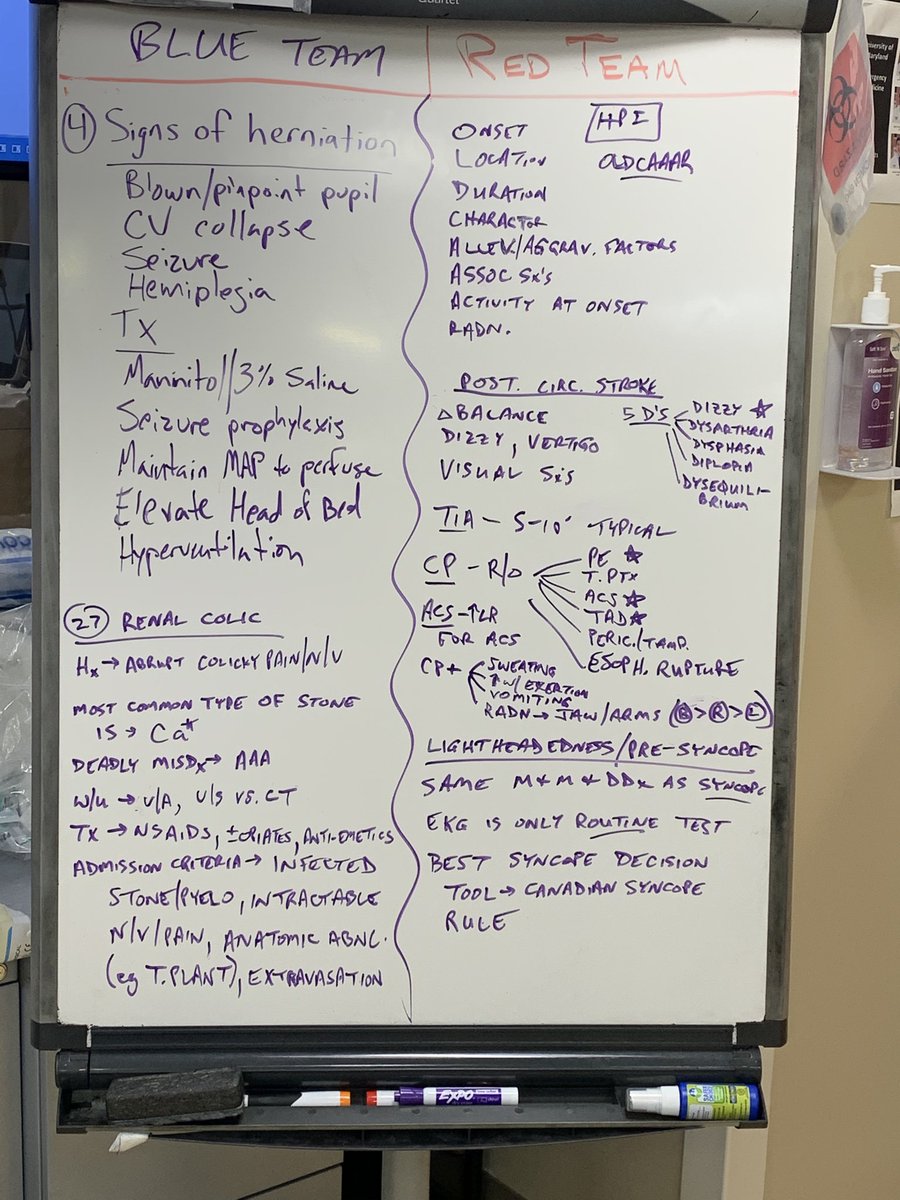 Quartet
BLUE TEAM
④ Signs of herniation
Blown/pinpoint pupil
CV collapse
Seizure
Hemiplegia
Tx
Mannitol//3% Saline
Seizure prophylaxis
Maintain MAP to perfuse
Elevate Head of Bed
Hyperventilation
㉗ RENAL COLIC
Hx → ABRUPT COLICKY PAIN/N/V
MOST COMMON TYPE OF STONE
IS → Ca*
DEADLY MISDx → AAA
W/U → U/A, U/S VS. CT
TX → NSAIDS, ±OPIATES, ANTI-EMETICS
ADMISSION CRITERIA → INFECTED
STONE/PYELO, INTRACTABLE
N/V/PAIN, ANATOMIC ABNL.
(eg T.PLANT), EXTRAVASATION
RED TEAM
HPI
OLDCAAAR
ONSET
LOCATION
DURATION
CHARACTOR
ALLEV./AGGRAV. FACTORS
ASSOC Sx's
ACTIVITY AT ONSET
RADN.
POST. CIRC. STROKE
Δ BALANCE
DIZZY, VERTIGO
VISUAL Sx's
5 D'S
DIZZY ☆
DYSARTHRIA
DYSPHASIA
DIPLOPIA
DYSEQUILI-
BRIUM
TIA - 5-10' TYPICAL
CP - R/O
PE ☆
T.PTX
ACS ☆
TAD ☆
PERIC./TAMP.
ESOPH. RUPTURE
ACS - ↑LR
FOR ACS
CP+
SWEATING
↑ W/ EXERTION
VOMITING
RADN → JAW/ARMS (Ⓑ>Ⓡ>Ⓛ)
LIGHTHEADEDNESS/PRE-SYNCOPE
SAME M+M & DDx AS SYNCOPE
EKG IS ONLY ROUTINE TEST
BEST SYNCOPE DECISION
TOOL → CANADIAN SYNCOPE
RULE
Hand Sanitizer
EXPO